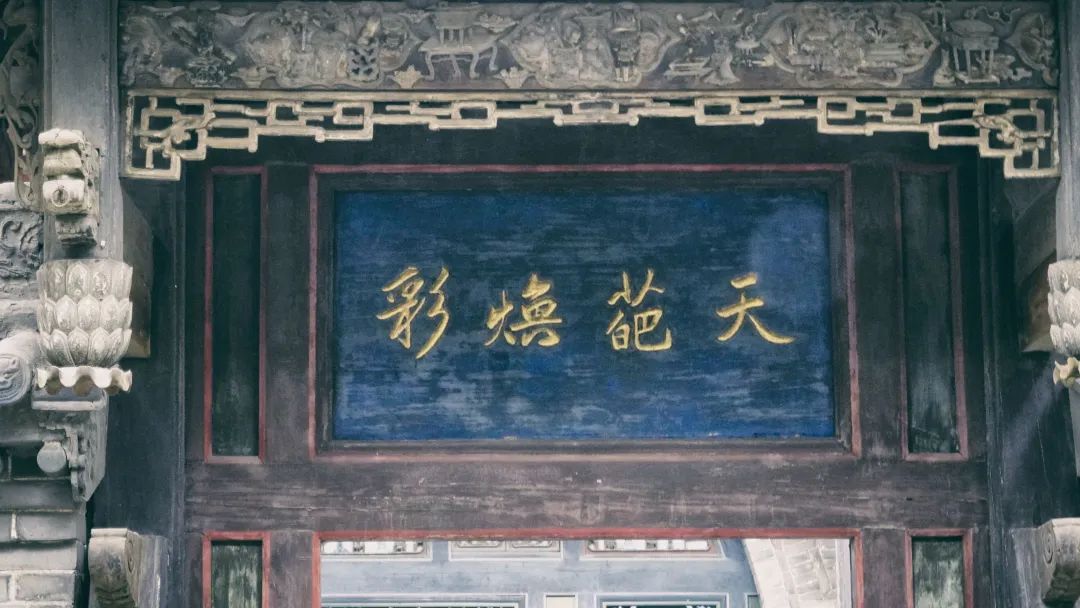 天葩煥彩